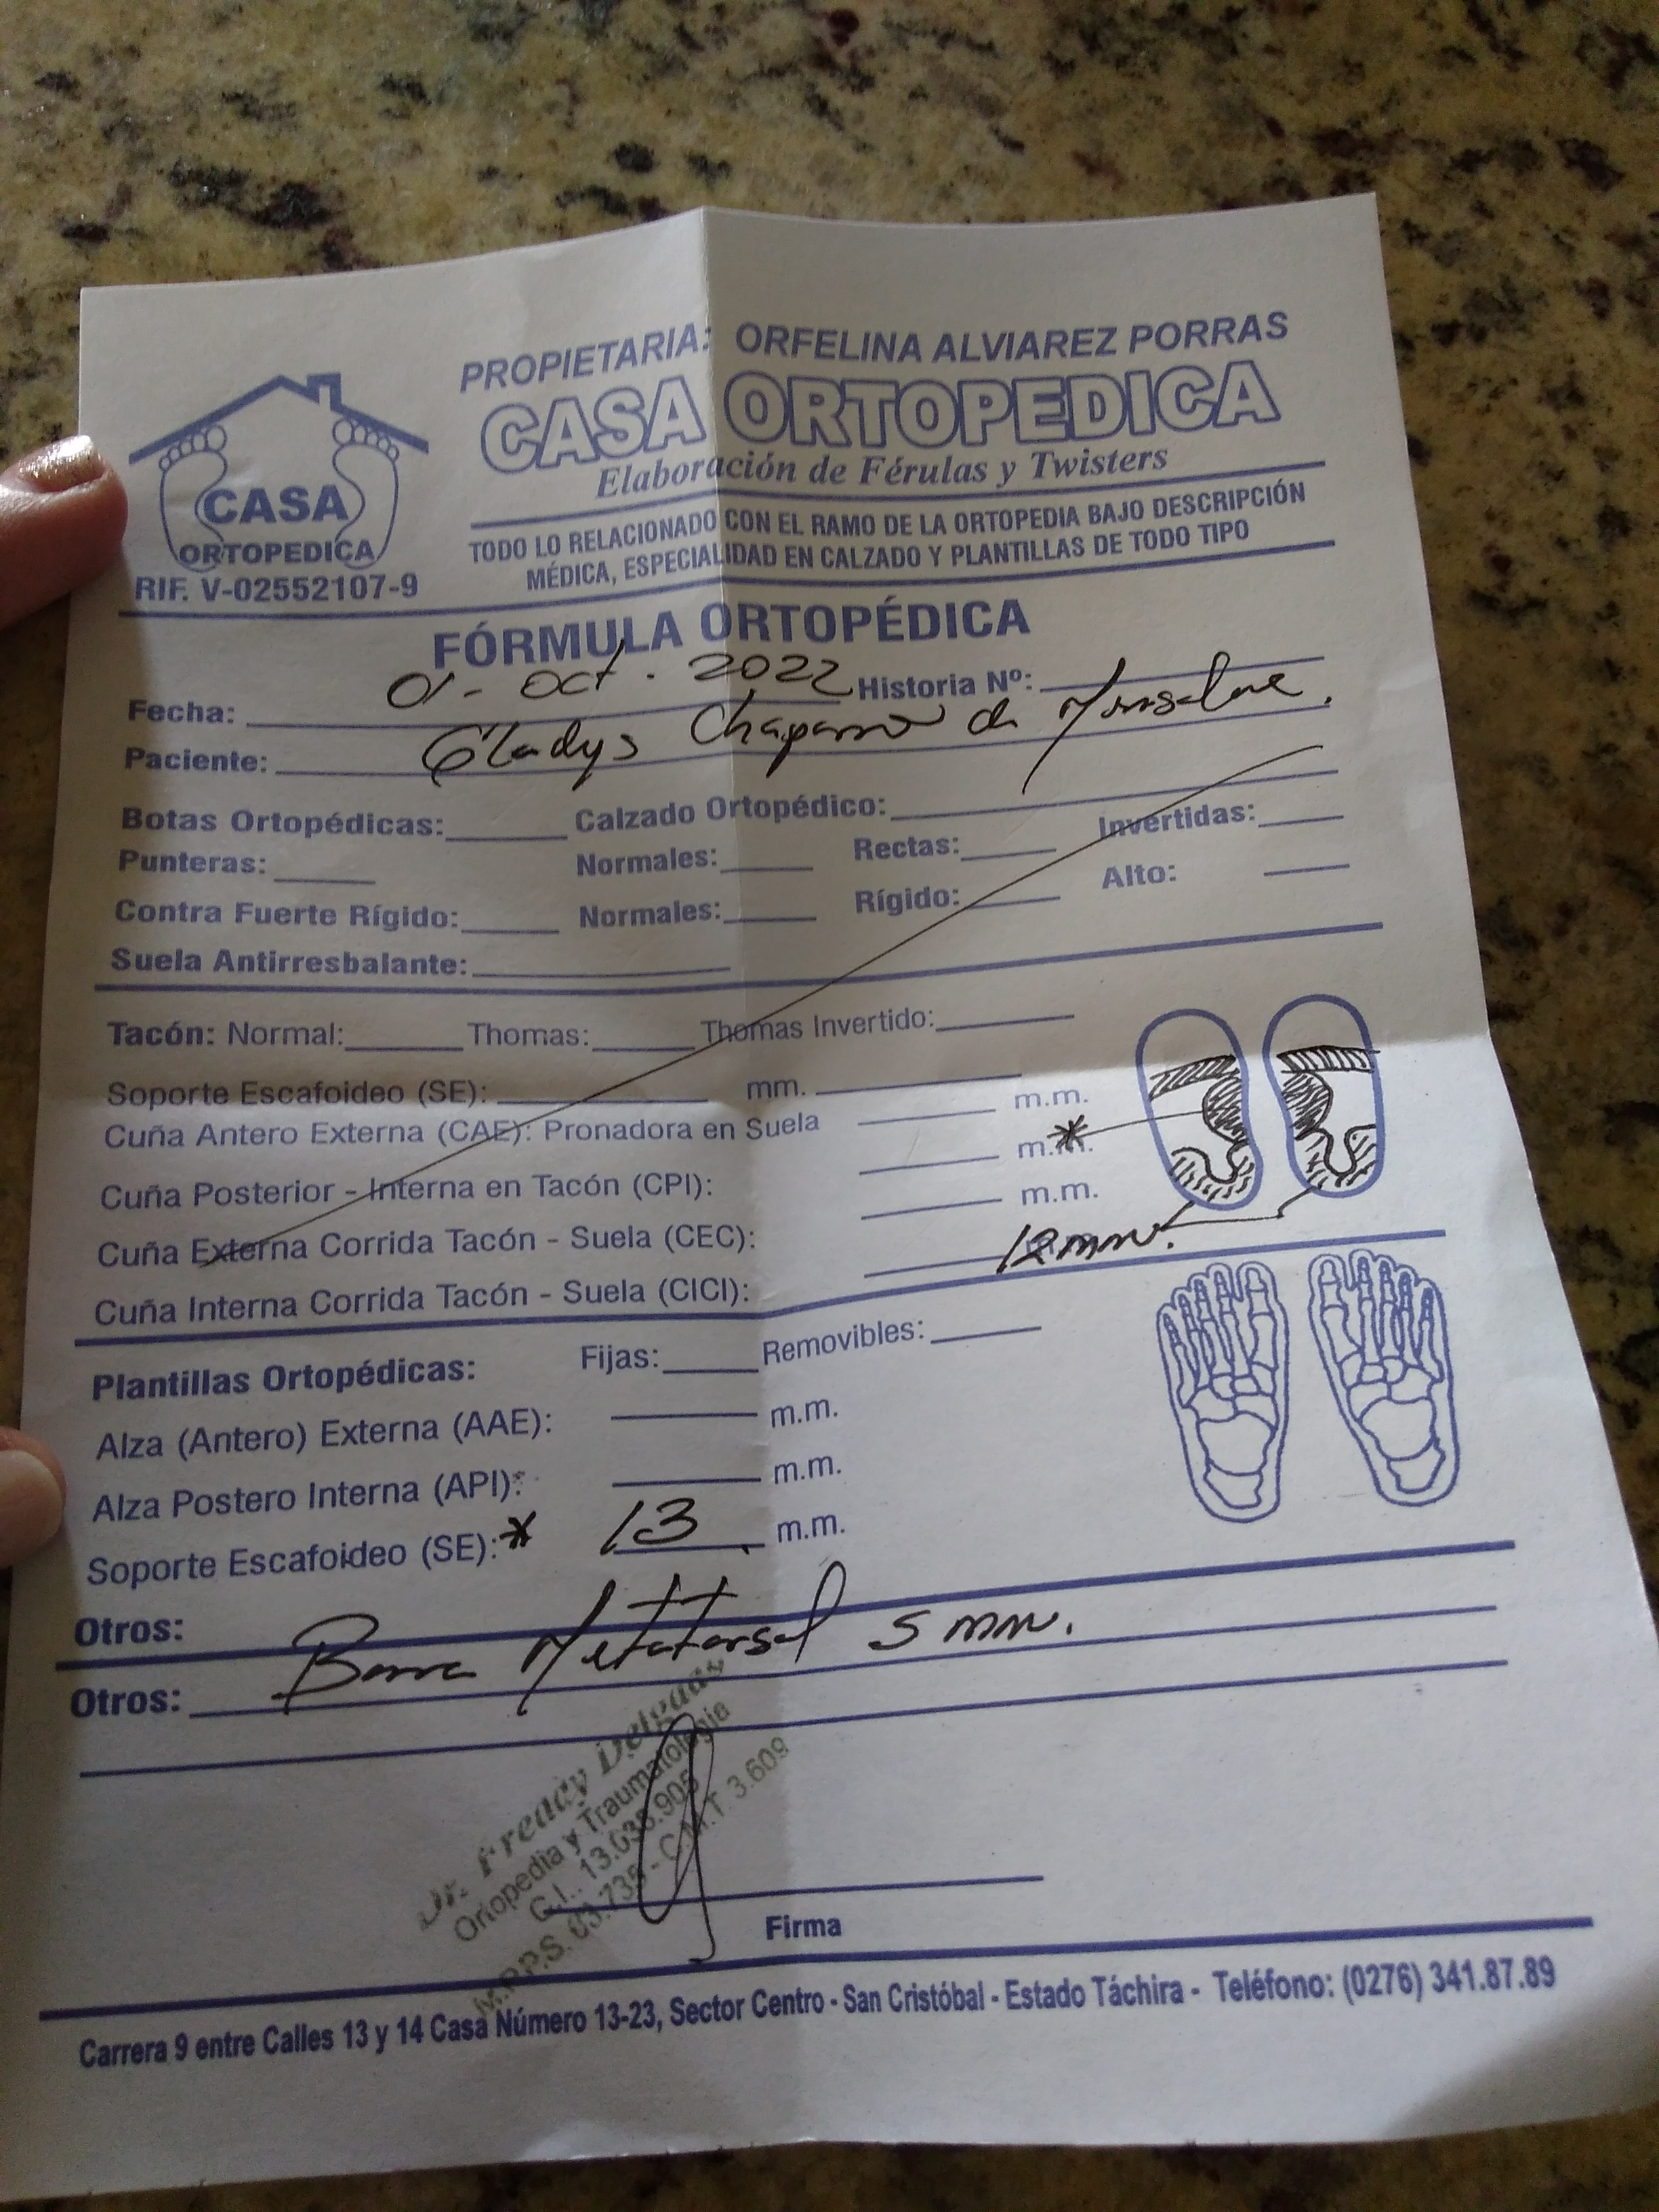 PROPIETARIA: ORFELINA ALVIAREZ PORRAS
CASA ORTOPEDICA
Elaboración de Férulas y Twisters
TODO LO RELACIONADO CON EL RAMO DE LA ORTOPEDIA BAJO DESCRIPCIÓN
MÉDICA, ESPECIALIDAD EN CALZADO Y PLANTILLAS DE TODO TIPO
CASA
ORTOPEDICA
RIF. V-02552107-9
FÓRMULA ORTOPÉDICA
Fecha: 01-Oct. 2022 Historia Nº:
Paciente: Gladys Chaparro de
Botas Ortopédicas: Calzado Ortopédico:
Punteras: Normales: Rectas: Invertidas:
Contra Fuerte Rígido: Normales: Rígido: Alto:
Suela Antirresbalante:
Tacón: Normal: Thomas: Thomas Invertido:
Soporte Escafoideo (SE): mm. m.m.
Cuña Antero Externa (CAE): Pronadora en Suela m.m. *
Cuña Posterior - Interna en Tacón (CPI): m.m.
Cuña Externa Corrida Tacón - Suela (CEC): 12 mm.
Cuña Interna Corrida Tacón - Suela (CICI):
Plantillas Ortopédicas: Fijas: Removibles:
Alza (Antero) Externa (AAE): m.m.
Alza Postero Interna (API): m.m.
Soporte Escafoideo (SE): * 13 m.m.
Otros: Barra Metatarsal 5 mm.
Otros:
Dr. Freddy Delgado
Ortopedia y Traumatología
C.I.. 13.038.905
M.P.P.S. 63.735 - C.M.T. 3.609
Firma
Carrera 9 entre Calles 13 y 14 Casa Número 13-23, Sector Centro - San Cristóbal - Estado Táchira - Teléfono: (0276) 341.87.89